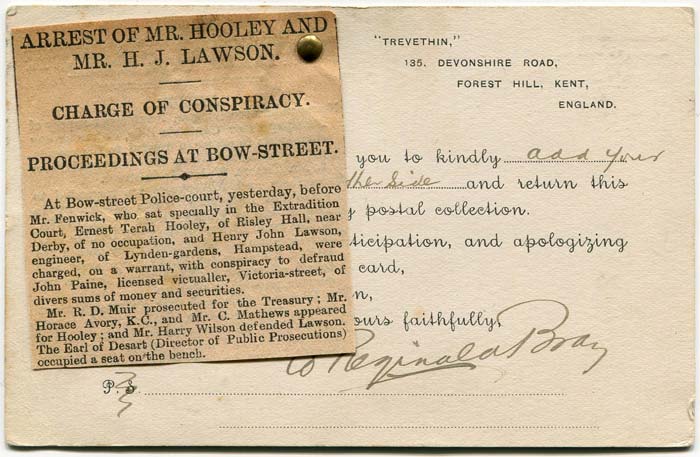 ARREST OF MR. HOOLEY AND
MR. H. J. LAWSON.
CHARGE OF CONSPIRACY.
PROCEEDINGS AT BOW-STREET.
At Bow-street Police-court, yesterday, before
Mr. Fenwick, who sat specially in the Extradition
Court, Ernest Terah Hooley, of Risley Hall, near
Derby, of no occupation, and Henry John Lawson,
engineer, of Lynden-gardens, Hampstead, were
charged, on a warrant, with conspiracy to defraud
John Paine, licensed victualler, Victoria-street, of
divers sums of money and securities.
Mr. R. D. Muir prosecuted for the Treasury; Mr.
Horace Avory, K.C., and Mr. C. Mathews appeared
for Hooley; and Mr. Harry Wilson defended Lawson.
The Earl of Desart (Director of Public Prosecutions)
occupied a seat on the bench.
"TREVETHIN,"
135, DEVONSHIRE ROAD,
FOREST HILL, KENT,
ENGLAND.
you to kindly add your
side and return this
postal collection.
and apologizing
card,
faithfully,
Reginald Bray
P.S.